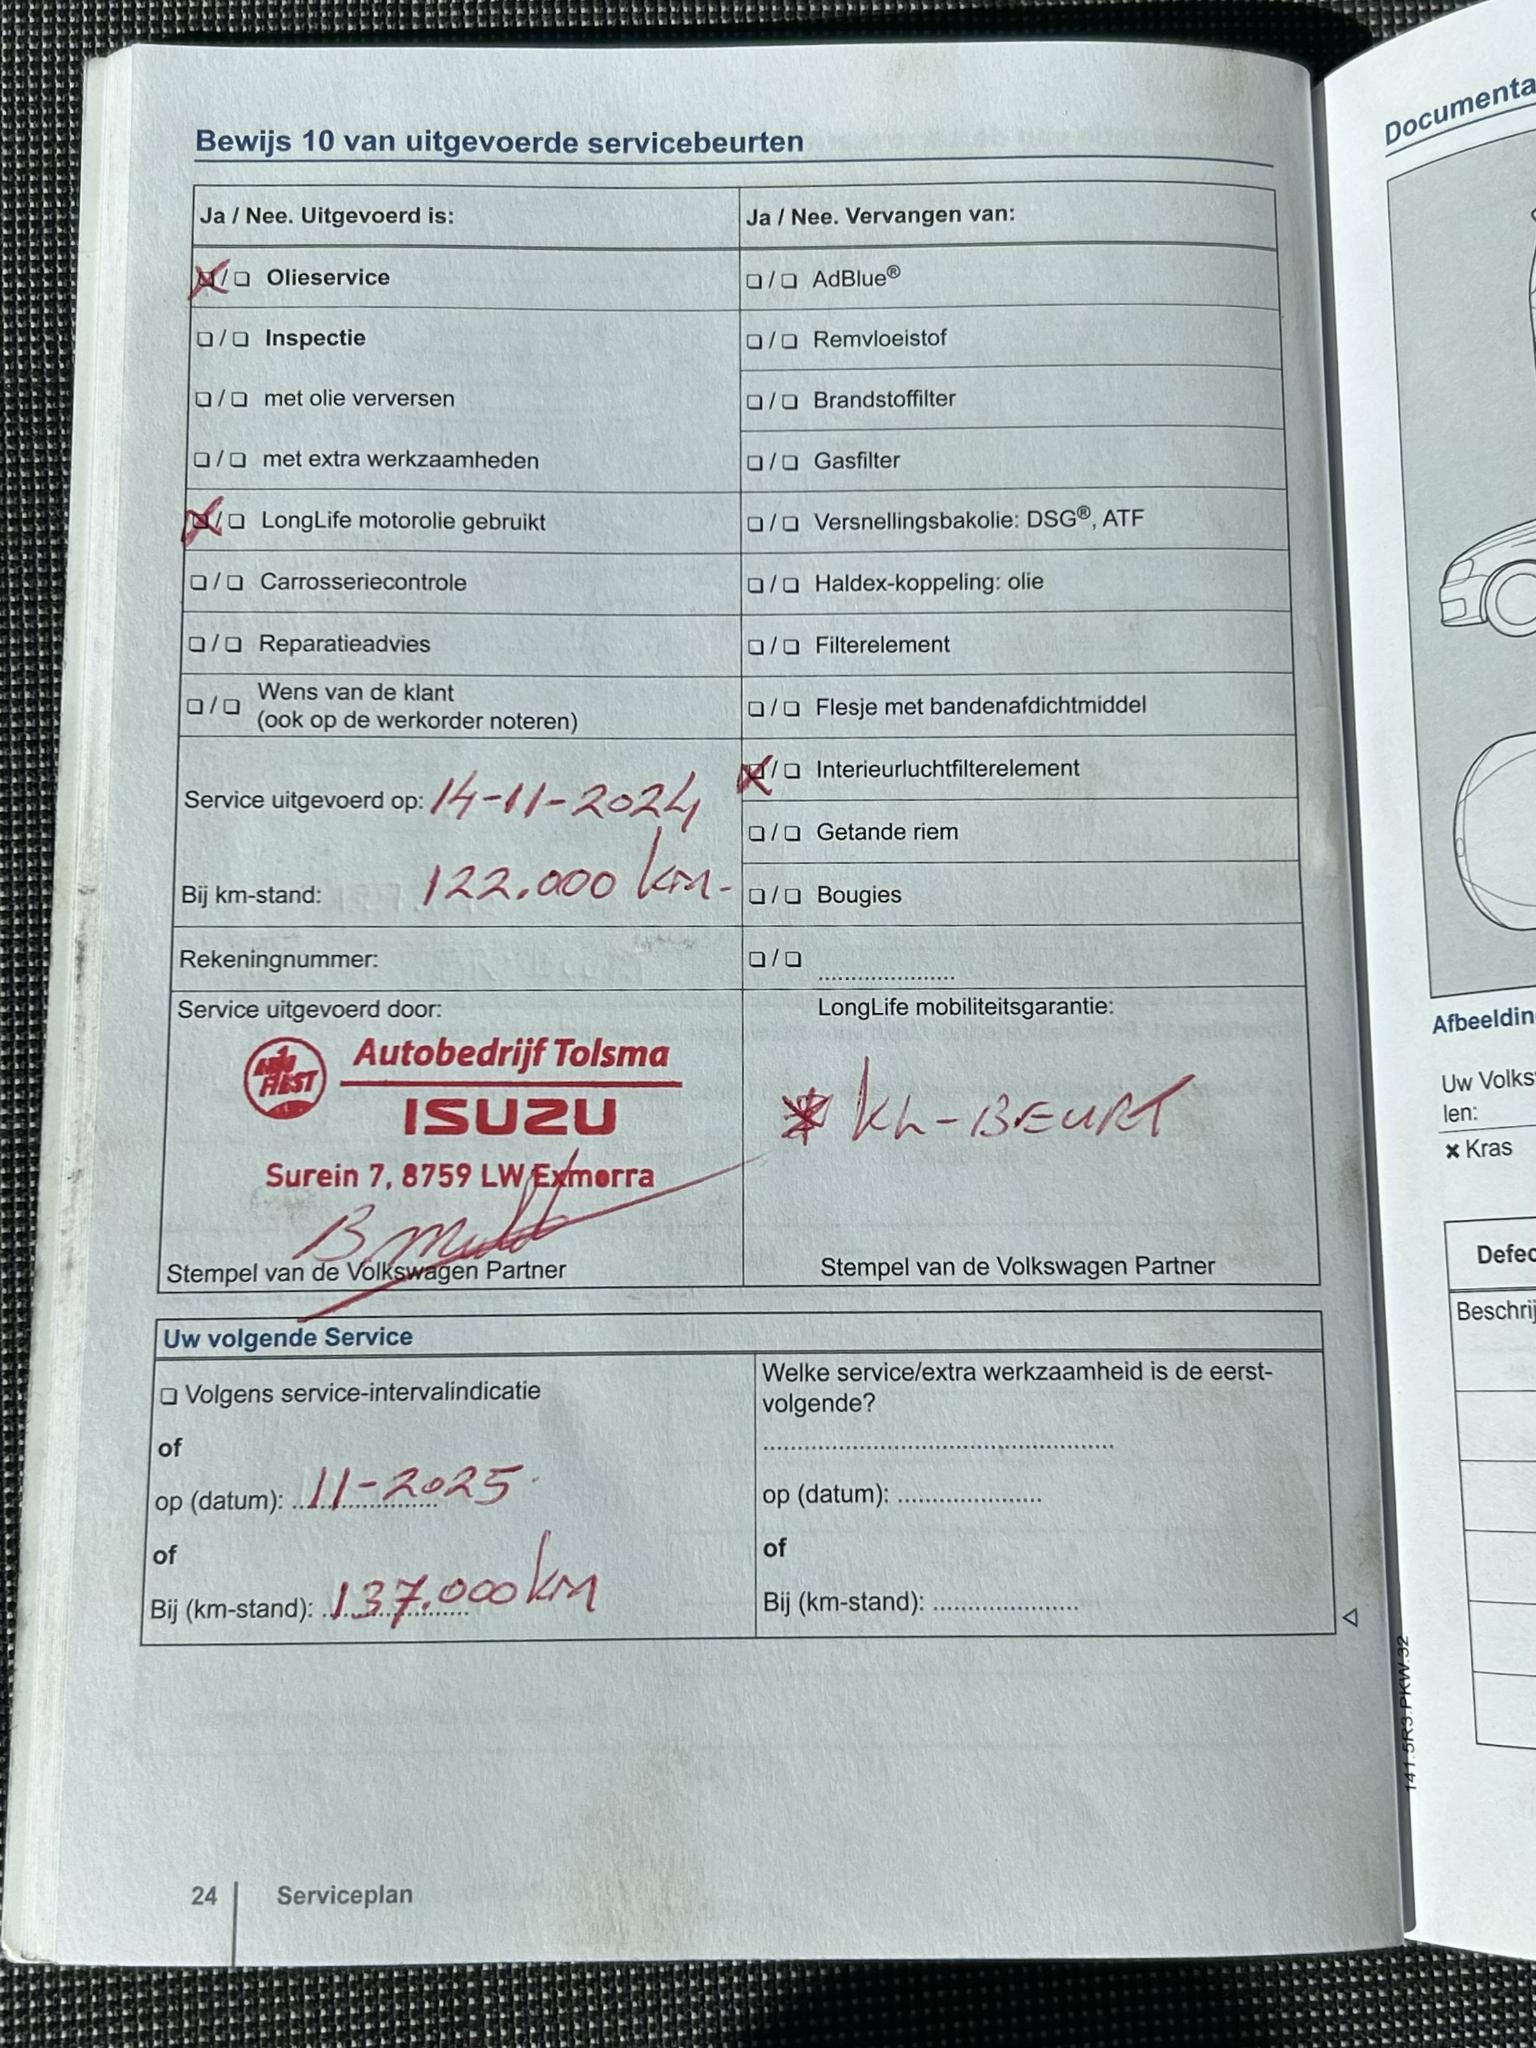 Bewijs 10 van uitgevoerde servicebeurten
Ja / Nee. Uitgevoerd is:
Olieservice
Inspectie
met olie verversen
met extra werkzaamheden
LongLife motorolie gebruikt
Carrosseriecontrole
Reparatieadvies
Wens van de klant
(ook op de werkorder noteren)
Service uitgevoerd op: 14-11-2024
Bij km-stand: 122.000 km-
Rekeningnummer:
Ja / Nee. Vervangen van:
AdBlue®
Remvloeistof
Brandstoffilter
Gasfilter
Versnellingsbakolie: DSG®, ATF
Haldex-koppeling: olie
Filterelement
Flesje met bandenafdichtmiddel
Interieurluchtfilterelement
Getande riem
Bougies
Service uitgevoerd door:
Autobedrijf Tolsma
ISUZU
Surein 7, 8759 LW Exmorra
Stempel van de Volkswagen Partner
LongLife mobiliteitsgarantie:
* KL-BEURT
Stempel van de Volkswagen Partner
Uw volgende Service
Volgens service-intervalindicatie
of
op (datum): 11-2025
of
Bij (km-stand): 137.000 km
Welke service/extra werkzaamheid is de eerst-
volgende?
op (datum):
of
Bij (km-stand):
141.5R3.PKW.32
24 Serviceplan
Documenta
Afbeeldin
Uw Volks
len:
Kras
Defec
Beschrij